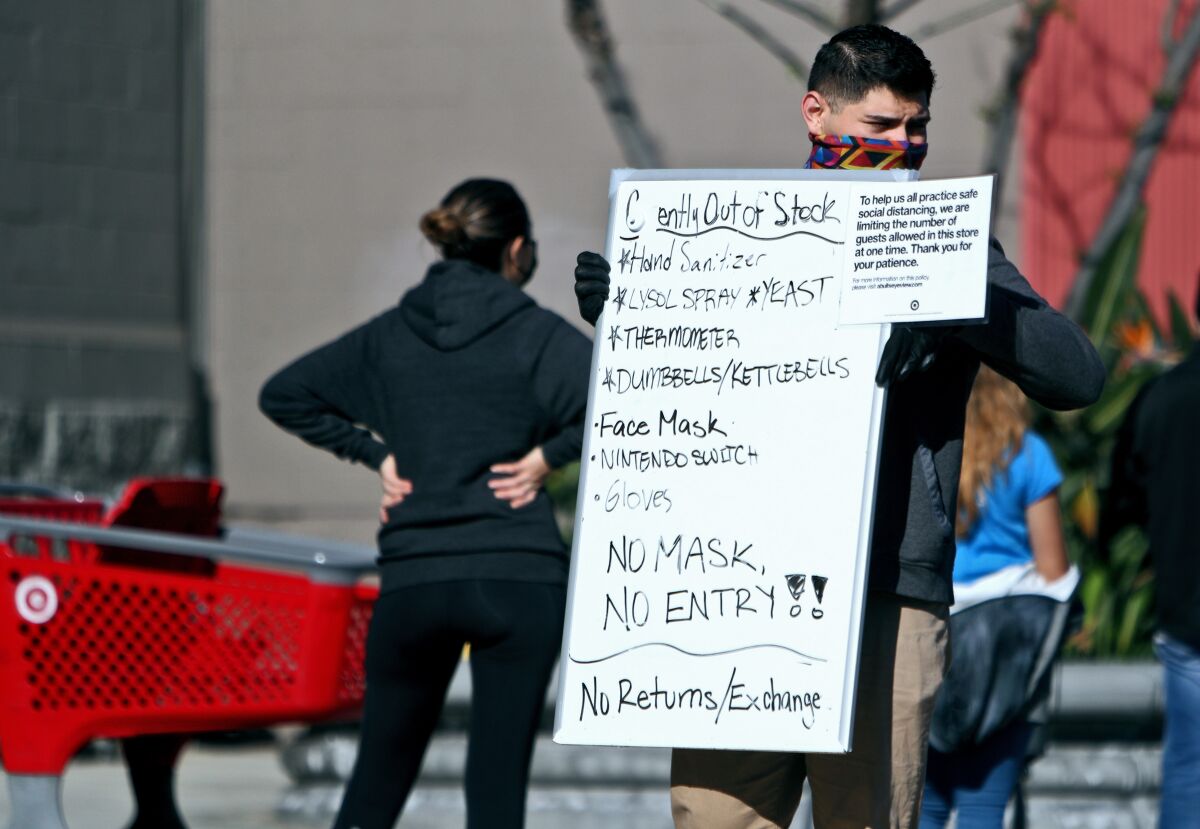 C ently Out of Stock
*Hand Sanitizer
*LYSOL SPRAY *YEAST
*THERMOMETER
*DUMBBELLS/KETTLEBELLS
·Face Mask
·NINTENDO SWITCH
·Gloves
NO MASK,
NO ENTRY!!
No Returns/Exchange
To help us all practice safe
social distancing, we are
limiting the number of
guests allowed in this store
at one time. Thank you for
your patience.
For more information on this policy,
please visit abullseyeview.com